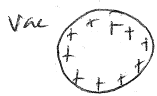 Vac
+ + + + + + + + + + +